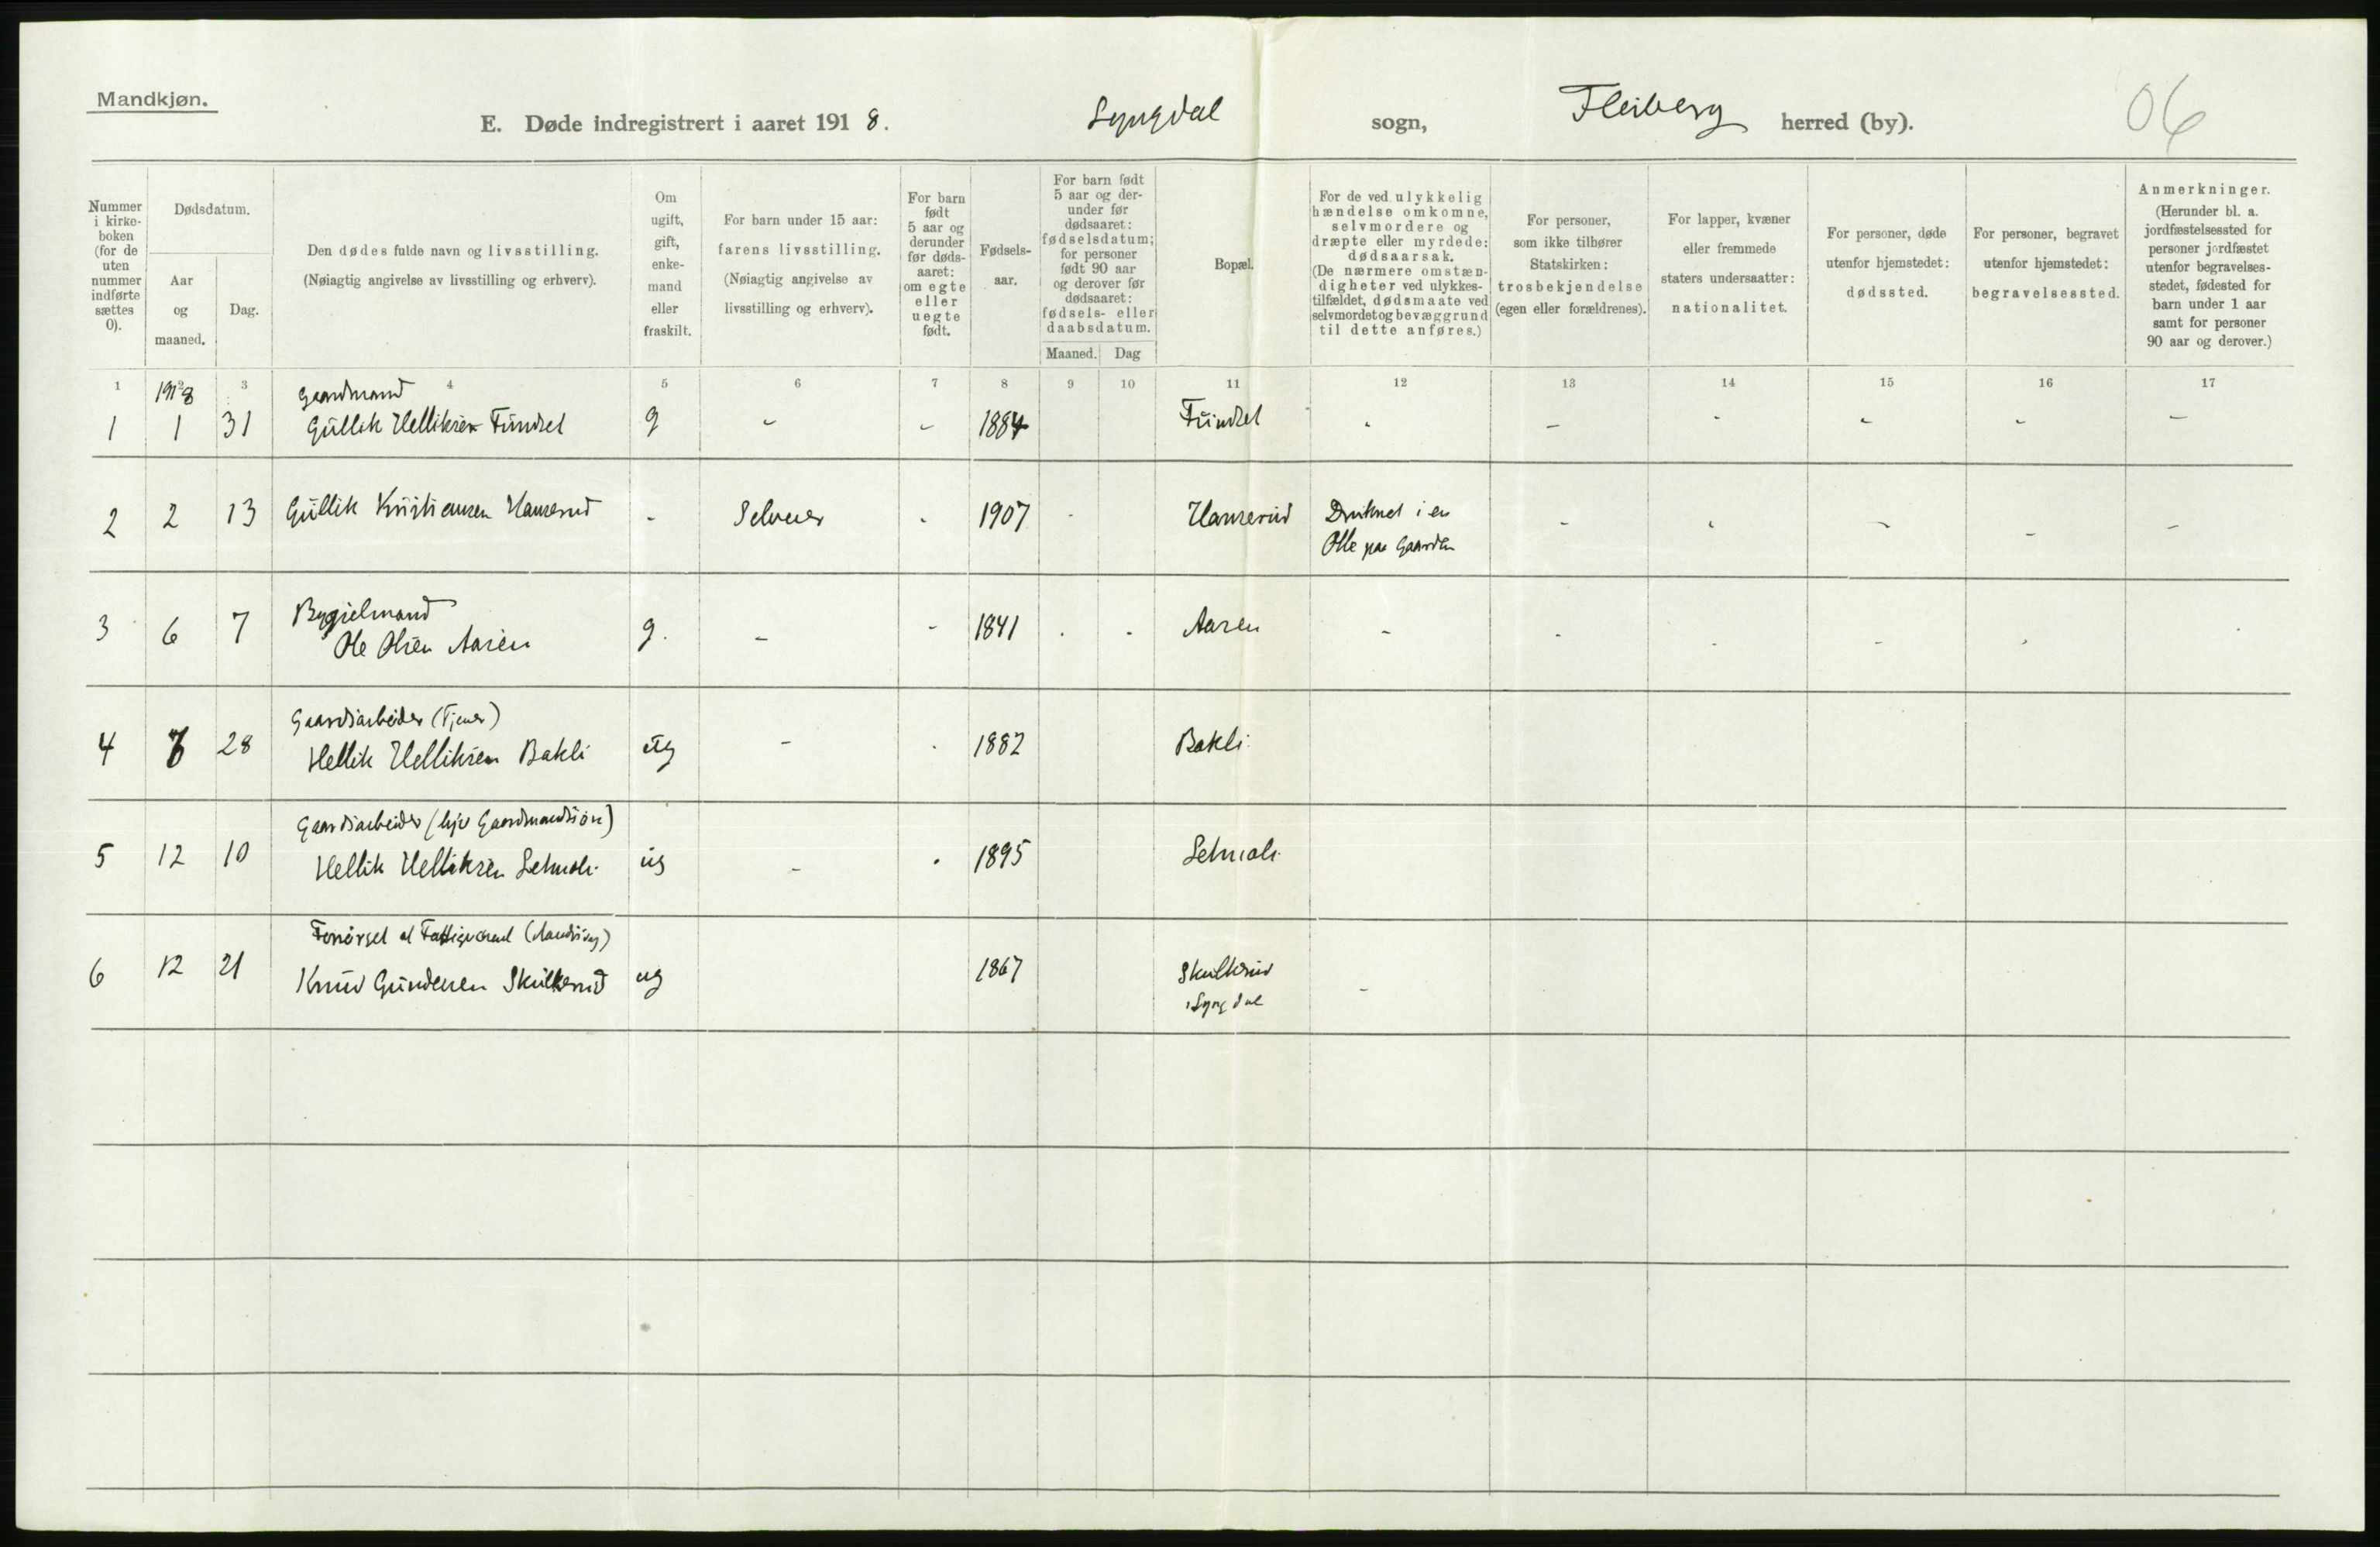 Mandkjøn.
E. Døde indregistrert i aaret 1918. Lyngdal sogn, Flesberg herred (by). 06
Nummer i kirke-boken (for de uten nummer indførte sættes 0).
Dødsdatum.
Aar og maaned.
Dag.
Den dødes fulde navn og livsstilling.
(Nøiagtig angivelse av livsstilling og erhverv).
Om ugift, gift, enke-mand eller fraskilt.
For barn under 15 aar: farens livsstilling. (Nøiagtig angivelse av livsstilling og erhverv).
For barn født 5 aar og derunder før døds-aaret: om egte eller uegte født.
Fødsels-aar.
For barn født 5 aar og der-under før dødsaaret: fødselsdatum; for personer født 90 aar og derover før dødsaaret: fødsels- eller daabsdatum.
Maaned. Dag
Bopæl.
For de ved ulykkelig hændelse omkomne, selvmordere og dræpte eller myrdede: dødsaarsak. (De nærmere omstæn-digheter ved ulykkes-tilfældet, dødsmaate ved selvmordet og bevæggrund til dette anføres.)
For personer, som ikke tilhører Statskirken: trosbekjendelse (egen eller forældrenes).
For lapper, kvæner eller fremmede staters undersaatter: nationalitet.
For personer, døde utenfor hjemstedet: dødssted.
For personer, begravet utenfor hjemstedet: begravelsessted.
Anmerkninger. (Herunder bl. a. jordfæstelsessted for personer jordfæstet utenfor begravelses-stedet, fødested for barn under 1 aar samt for personer 90 aar og derover.)
1 2 3 4 5 6 7 8 9 10 11 12 13 14 15 16 17
1918 Gaardmand
1 1 31 Gullik Helliksen Fundset g - - 1884 Fundset - - - - - -
2 2 13 Gullik Kristiansen Hanserud - Selveier - 1907 - Hanserud Druknet i en
Olle paa Gaarden - - - - -
Bygselmand
3 6 7 Ole Olsen Aasen g. - - 1841 - - Aasen - - - - -
Gaardsarbeider (Tjener)
4 7 28 Hellik Helliksen Bakli ug - - 1882 Bakli
Gaardsarbeider ( Gaardmandssøn)
5 12 10 Hellik Helliksen ug - - 1895
Forsørget af Fattigvæsenet
6 12 21 Knud Gundersen Skulkerud ug 1867 Skulkerud
i Lyngdal -